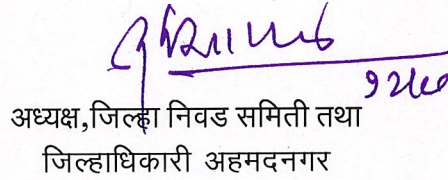 अध्यक्ष,जिल्हा निवड समिती तथा
जिल्हाधिकारी अहमदनगर